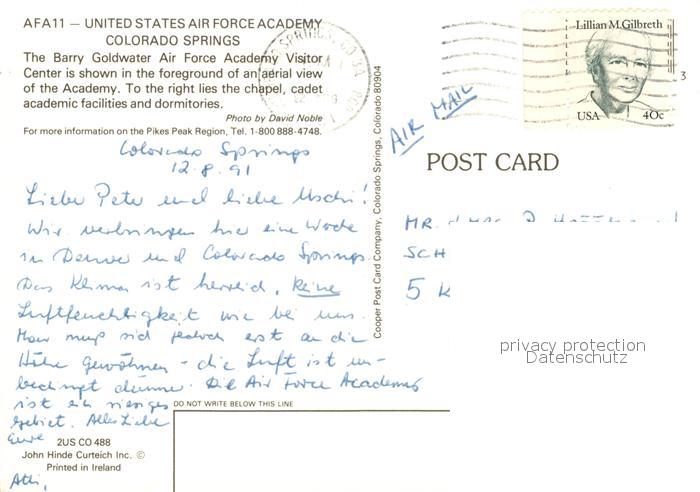 AFA11 — UNITED STATES AIR FORCE ACADEMY
COLORADO SPRINGS
The Barry Goldwater Air Force Academy Visitor
Center is shown in the foreground of an aerial view
of the Academy. To the right lies the chapel, cadet
academic facilities and dormitories.
Photo by David Noble
For more information on the Pikes Peak Region, Tel. 1-800 888-4748.
Colorado Springs
12.8.91
Lieber Peter und liebe Uschi!
Wir verbringen hier eine Woche
in Denver und Colorado Springs.
Das Klima ist herrlich, keine
Luftfeuchtigkeit wie bei uns.
Man muß sich jedoch erst an die
Höhe gewöhnen - die Luft ist un-
bedingt dünner. Die Air Force Academy
ist ein riesiges
Gebiet. Alles Liebe
Eure
2US CO 488
John Hinde Curteich Inc. ©
Printed in Ireland
DO NOT WRITE BELOW THIS LINE
Cooper Post Card Company, Colorado Springs, Colorado 80904
Lillian M. Gilbreth
USA 40c
3
AIR MAIL
POST CARD
MR.
SCH
5 K
privacy protection
Datenschutz